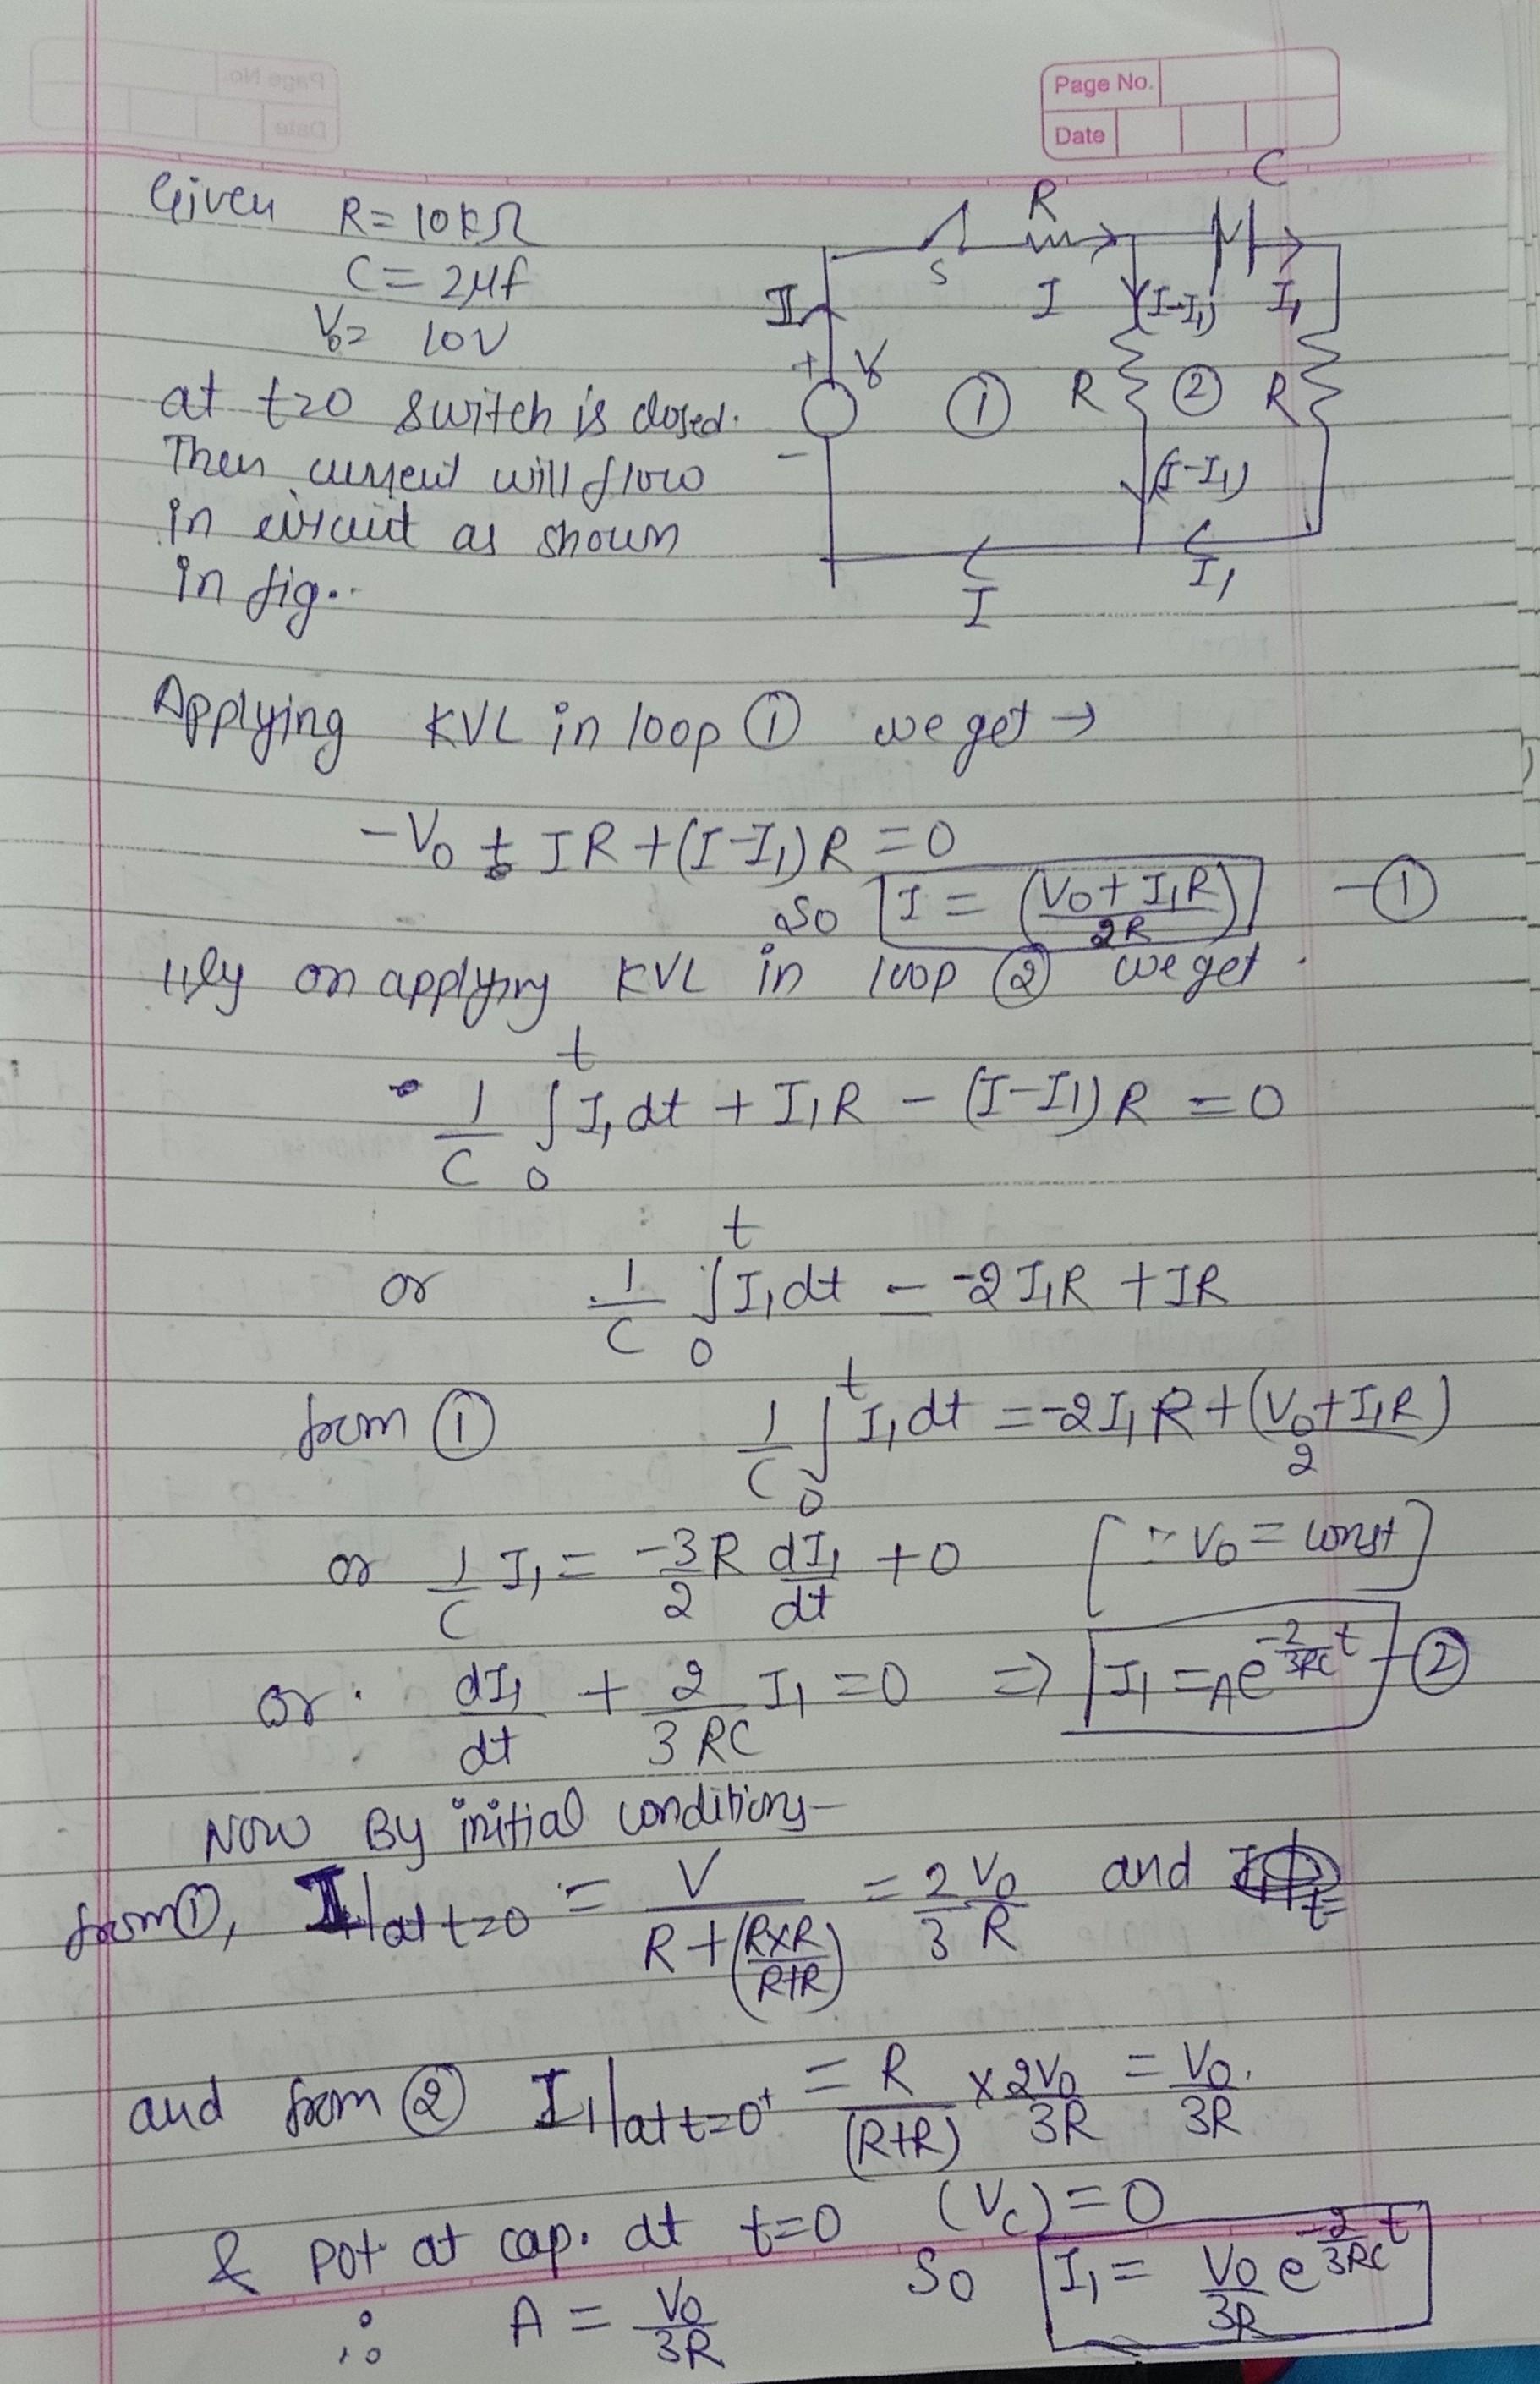 Page No.
Date
Given R = 10KΩ
C = 2μf
V₀ = 10V
at t=0 switch is closed.
Then current will flow
in circuit as shown
in fig..
S
R
I
C
I₁
(I-I₁)
I
+ V₀
-
①
R
②
R
(I-I₁)
I
I₁
Applying KVL in loop ① we get →
-V₀ + IR + (I-I₁)R = 0
So I = (V₀ + I₁R)/2R - ①
llly on applying KVL in loop ② we get.
1/C ∫₀ᵗ I₁dt + I₁R - (I-I₁)R = 0
or 1/C ∫₀ᵗ I₁dt = -2I₁R + IR
from ① 1/C ∫₀ᵗ I₁dt = -2I₁R + (V₀+I₁R)/2
or 1/C I₁ = -3/2 R dI₁/dt + 0 [∵ V₀ = const]
or. dI₁/dt + 2/3RC I₁ = 0 ⇒ I₁ = Ae^(-2/3RC t) - ②
Now By initial conditions-
from ①, I|at t=0 = V/(R+(R×R/R+R)) = 2/3 V₀/R and
and from ② I₁|at t=0⁺ = R/(R+R) × 2V₀/3R = V₀/3R.
& pot at cap. at t=0 (Vc) = 0
∴ A = V₀/3R So I₁ = V₀/3R e^(-2/3RC t)